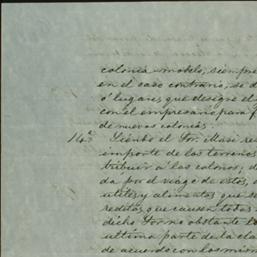 colonia modelo, siempre
en el caso contrario, se d
ó lugares, que designe el
con el empresario, para f
de nuevas colonias.
14ª Siendo el Sor. Masi re
importe de los terrenos
tribuir a los colonos; d
da por el viage de estos, e
utiles y alimentos que se
reditos, que causen todas
dicho Sor. no obstante lo
ultima parte de la cla
de acuerdo con los mism